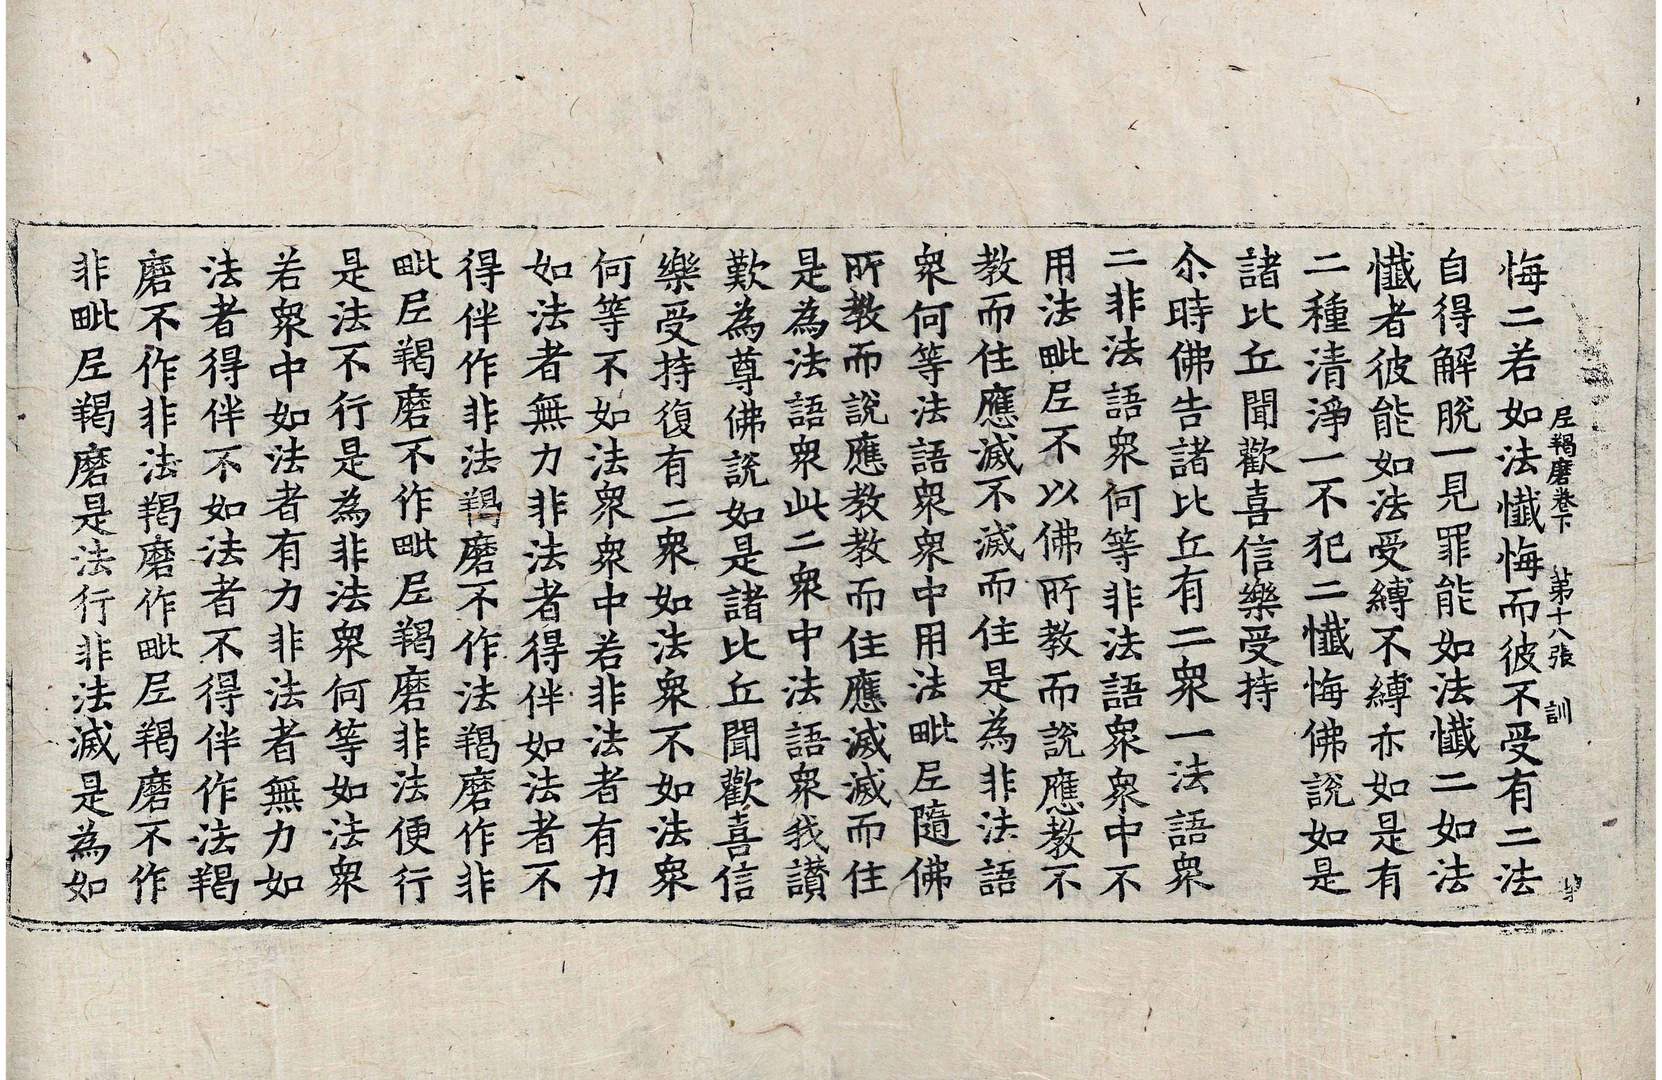 尼羯磨卷下 第十八張 訓
悔二若如法懺悔而彼不受有二法
自得解脫一見罪能如法懺二如法
懺者彼能如法受縛不縛亦如是有
二種清淨一不犯二懺悔佛說如是
諸比丘聞歡喜信樂受持
尒時佛告諸比丘有二眾一法語眾
二非法語眾何等非法語眾眾中不
用法毗尼不以佛所教而說應教不
教而住應滅不滅而住是為非法語
眾何等法語眾眾中用法毗尼隨佛
所教而說應教教而住應滅滅而住
是為法語眾此二眾中法語眾我讃
歎為尊佛說如是諸比丘聞歡喜信
樂受持復有二眾如法眾不如法眾
何等不如法眾眾中若非法者有力
如法者無力非法者得伴如法者不
得伴作非法羯磨不作法羯磨作非
毗尼羯磨不作毗尼羯磨非法便行
是法不行是為非法眾何等如法眾
若眾中如法者有力非法者無力如
法者得伴不如法者不得伴作法羯
磨不作非法羯磨作毗尼羯磨不作
非毗尼羯磨是法行非法滅是為如